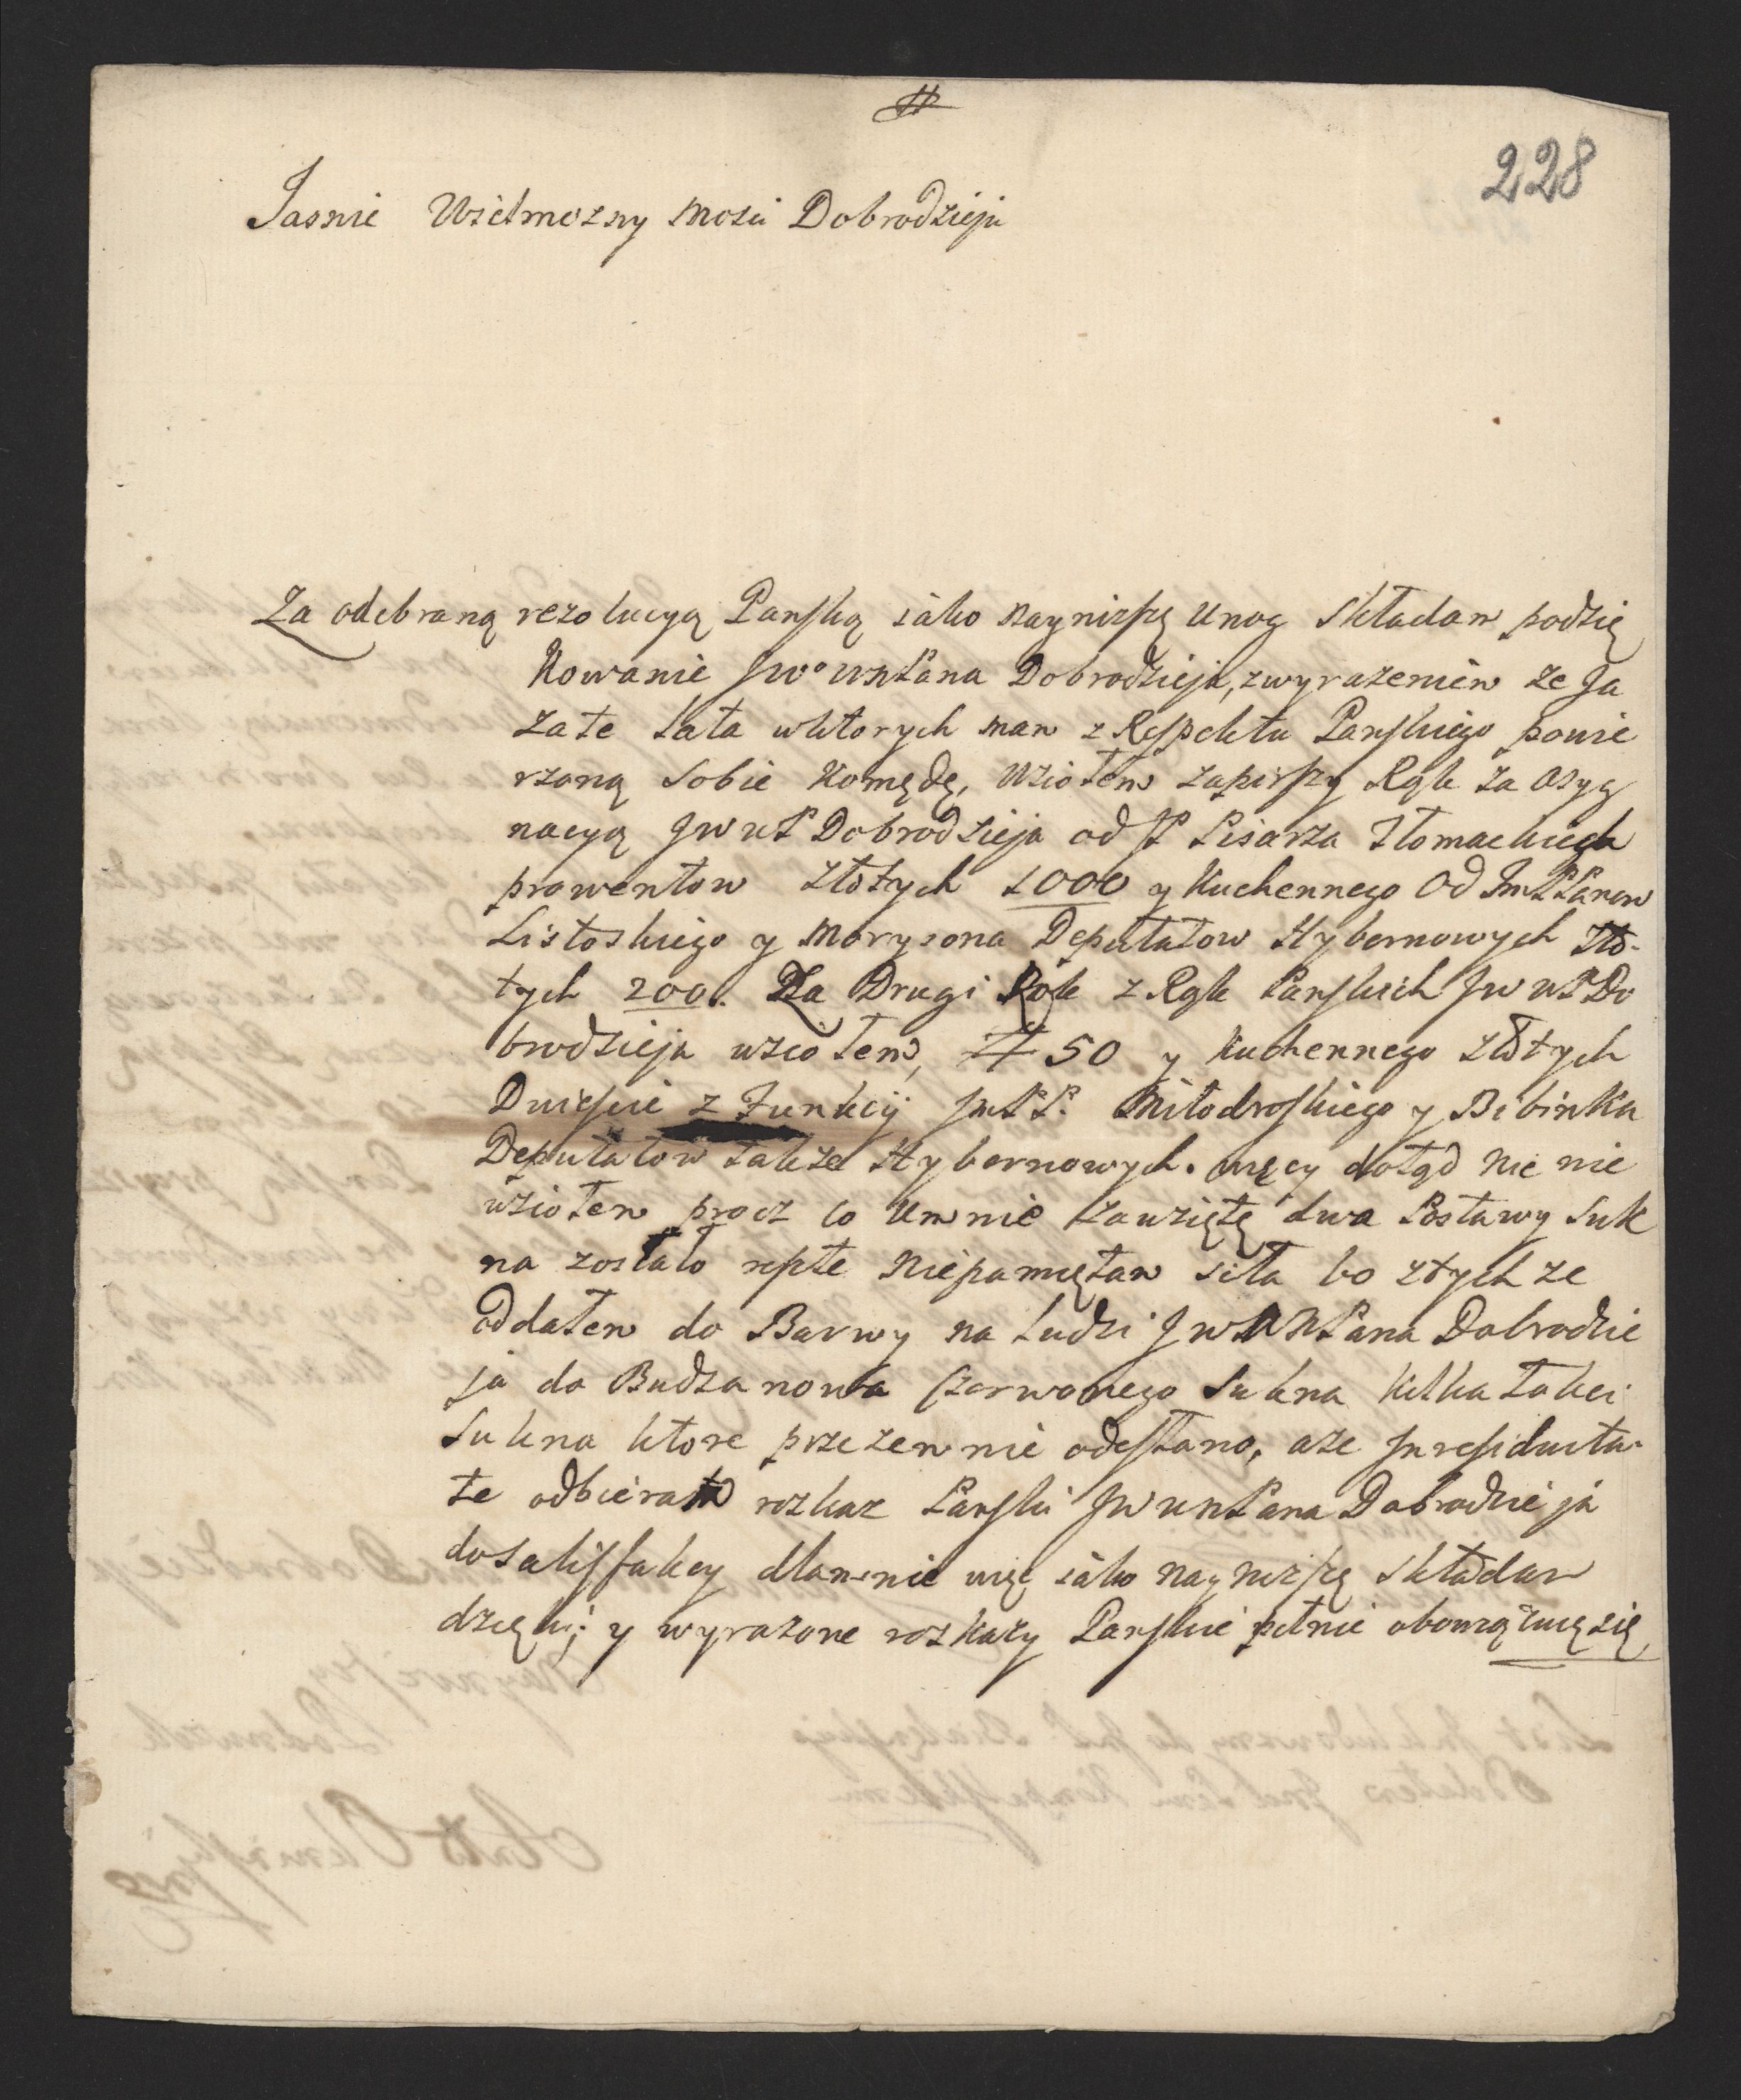 228
Jasnie Wielmozny Mosci Dobrodzieju
Za odebraną rezolucyą Panską iako nayniższy unog składam podzię
kowanie JWo WM Pana Dobrodzieja, z wyrazeniem ze Ja
za te Lata wktorych mam z Respektu Panskiego powie
rzoną sobie Komędę, wziołem za pirszy Rok za Asyg
nacyą JWWP Dobrodzieja od JP Pisarza Tłomackich
prowentow złotych 1000 y Kuchennego od Im PPanow
Listoskiego y Morysona Deputatow Hybernowych zło-
tych 200. Za Drugi Rok z Rąk Panskich JWWP Do
brodzieja wziołem, # 50 y kuchennego złotych
Dwiescie z Funkcij JmPP. Miłodroskiego y Bibinka
Deputatow także Hybernowych. więcy dotąd nic nie
wziołem procz co u mnie zawzięte dwa Postawy Suk
na zostało niepamiętam siła bo z tych ze
oddałem do Barwy na Ludzi JWWM Pana Dobrodzie
ja do Budzanowa Czerwonego Sukna kilka Łokci
Sukna ktore przezemnie odesłano, aze
te odbieram rozkaz Panski JWWM Pana Dobrodzieja
do satisfakcy dlamnie więc iako nayniższy składam
dzięki; y wyrazone rozkazy Panskie pełnic obowiązuię się